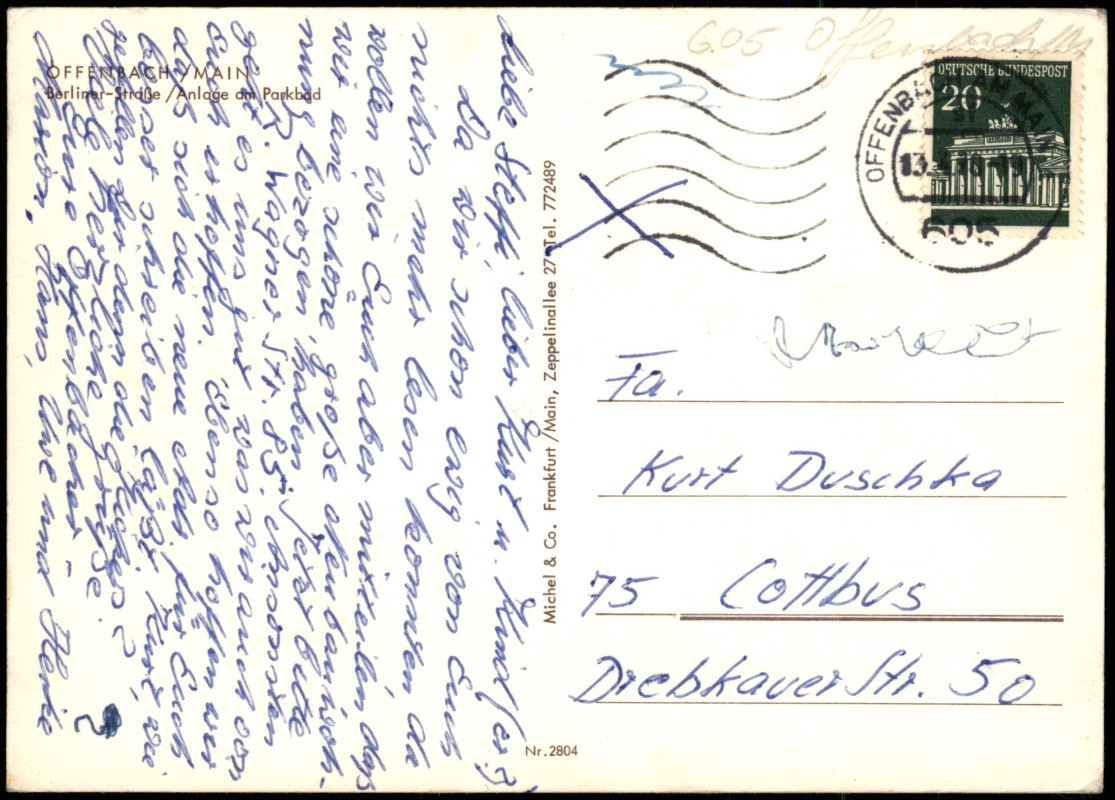 OFFENBACH/MAIN
Berliner-Straße/Anlage am Parkbad
Liebe Steffi, lieber Kurt u. Kind(er)
Da wir schon ewig von Euch
nichts mehr lesen konnten da
wollen wir Euch aber mitteilen, daß
wir eine schöne große Neubauwoh-
nung bezogen haben. Jetzt bitte
R. Wagner Str. 85. Ansonsten
geht es uns gut was wir auch von
Euch erhoffen. Ebenso hoffen wir
daß sich die neue etw. für Euch
besser schreiben läßt. Kurt, wie
gefallen dir denn die
Viele herzliche Grüße
Eure Offenbacher
Marion, Hans, Uwe und Heike
2
Michel & Co. Frankfurt/Main, Zeppelinallee 27 Tel. 772489
Nr. 2804
605 Offenbach/M
DEUTSCHE BUNDESPOST
20
OFFENBACH AM MAIN
605
Fa.
Kurt Duschka
75 Cottbus
Drebkauer Str. 50